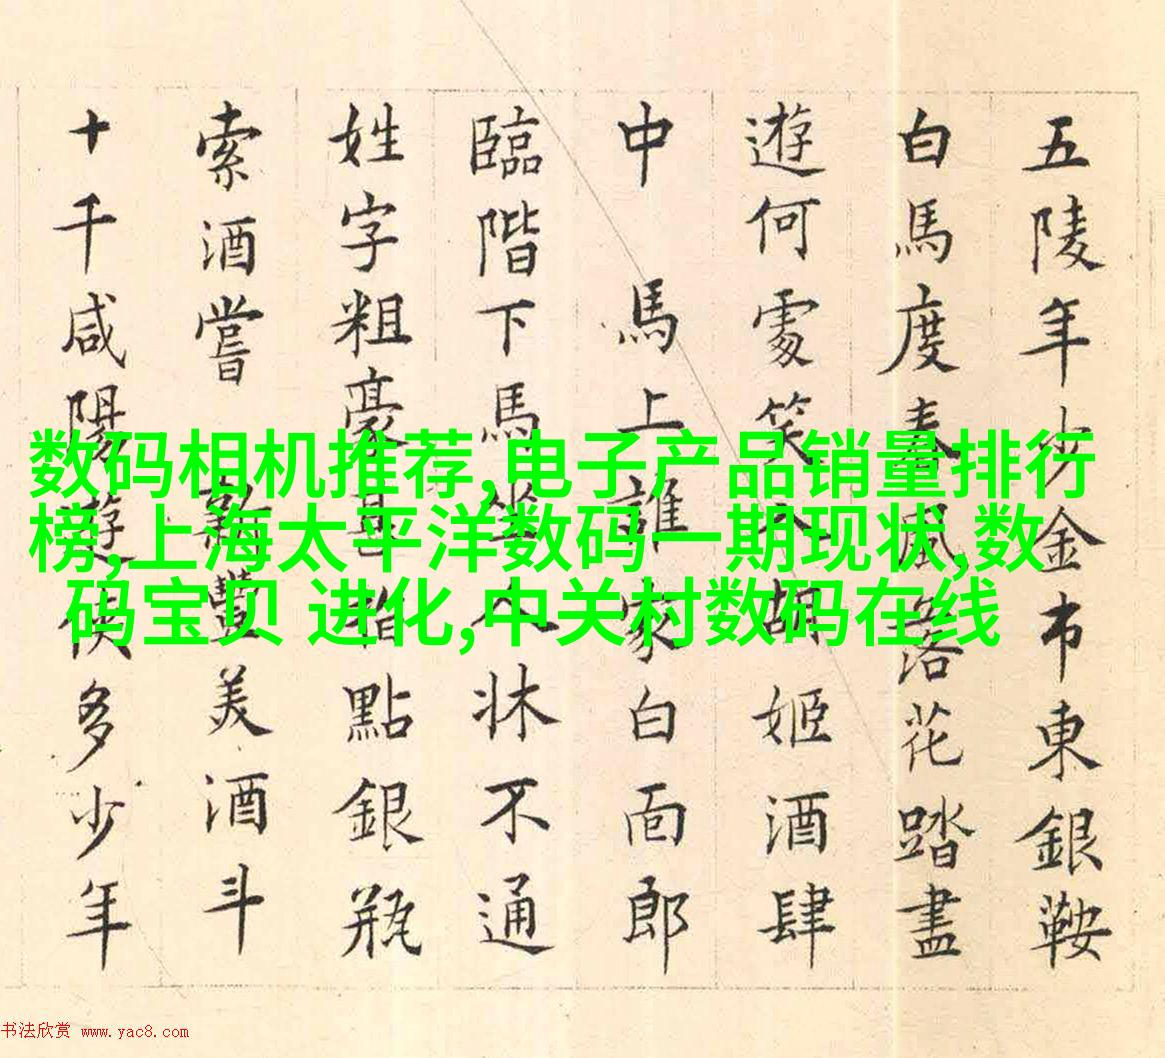 五陵年少金市東銀鞍
白馬度春風落花踏盡
遊何處笑入胡姬酒肆
中 馬上誰家白面郎
臨階下馬坐人牀不通
姓字粗豪甚指點銀瓶
索酒嘗 新豐美酒斗
十千咸陽遊俠多少年
数码相机推荐,电子产品销量排行
榜,上海太平洋数码一期现状,数
码宝贝 进化,中关村数码在线
书法欣赏 www.yac8.com